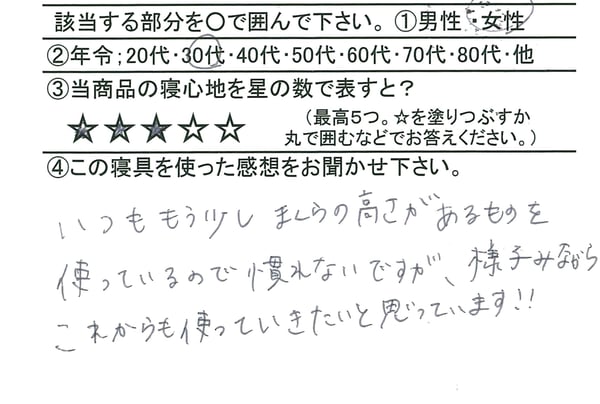 該当する部分を〇で囲んで下さい。①男性・女性
②年令;20代・30代・40代・50代・60代・70代・80代・他
③当商品の寝心地を星の数で表すと?
★★★☆☆
(最高5つ。☆を塗りつぶすか
丸で囲むなどでお答えください。)
④この寝具を使った感想をお聞かせ下さい。
いつももう少しまくらの高さがあるものを
使っているので慣れないですが、様子みながら
これからも使っていきたいと思っています!!